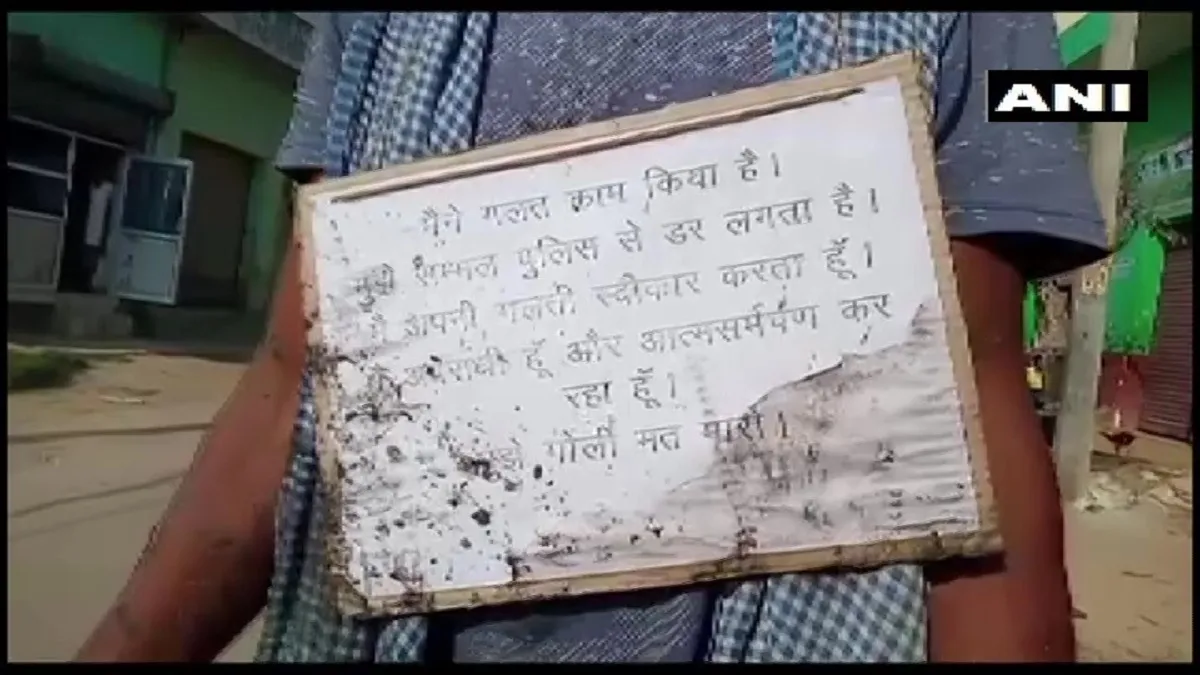 ANI
मैने गलत काम किया है।
मुझे सम्भल पुलिस से डर लगता है।
मै अपनी गलती स्वीकार करता हूॅ।
मै अपराधी हूॅ और आत्मसर्मपण कर
रहा हूॅ।
मुझे गोली मत मारो।